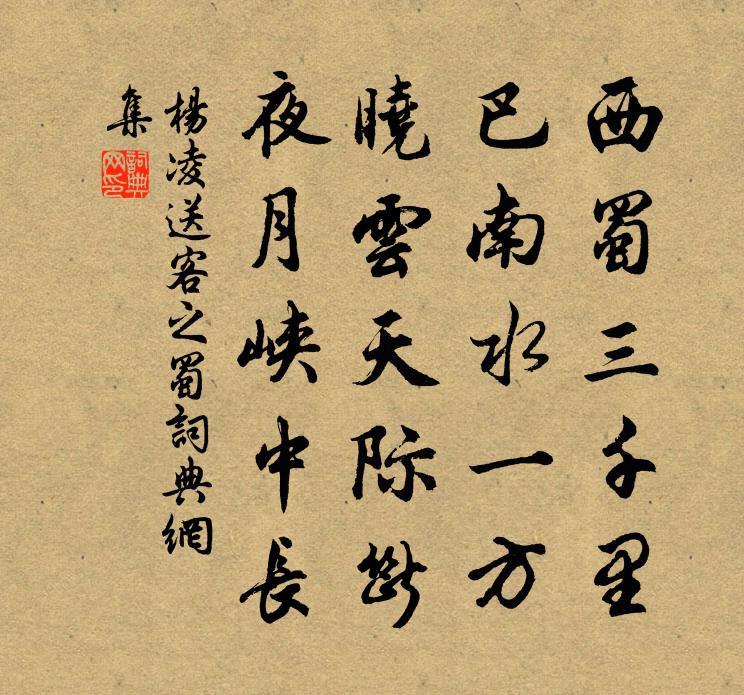 西蜀三千里
巴南水一方
曉雲天际斷
夜月峡中長
楊凌送客之蜀詞典網
集
詞典网印